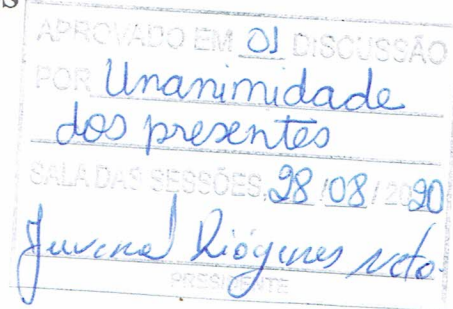 S
APROVADO EM 01 DISCUSSÃO
POR Unanimidade
dos presentes
SALA DAS SESSÕES, 28/08/2020
Juvenal Diógenes Neto
PRESIDENTE